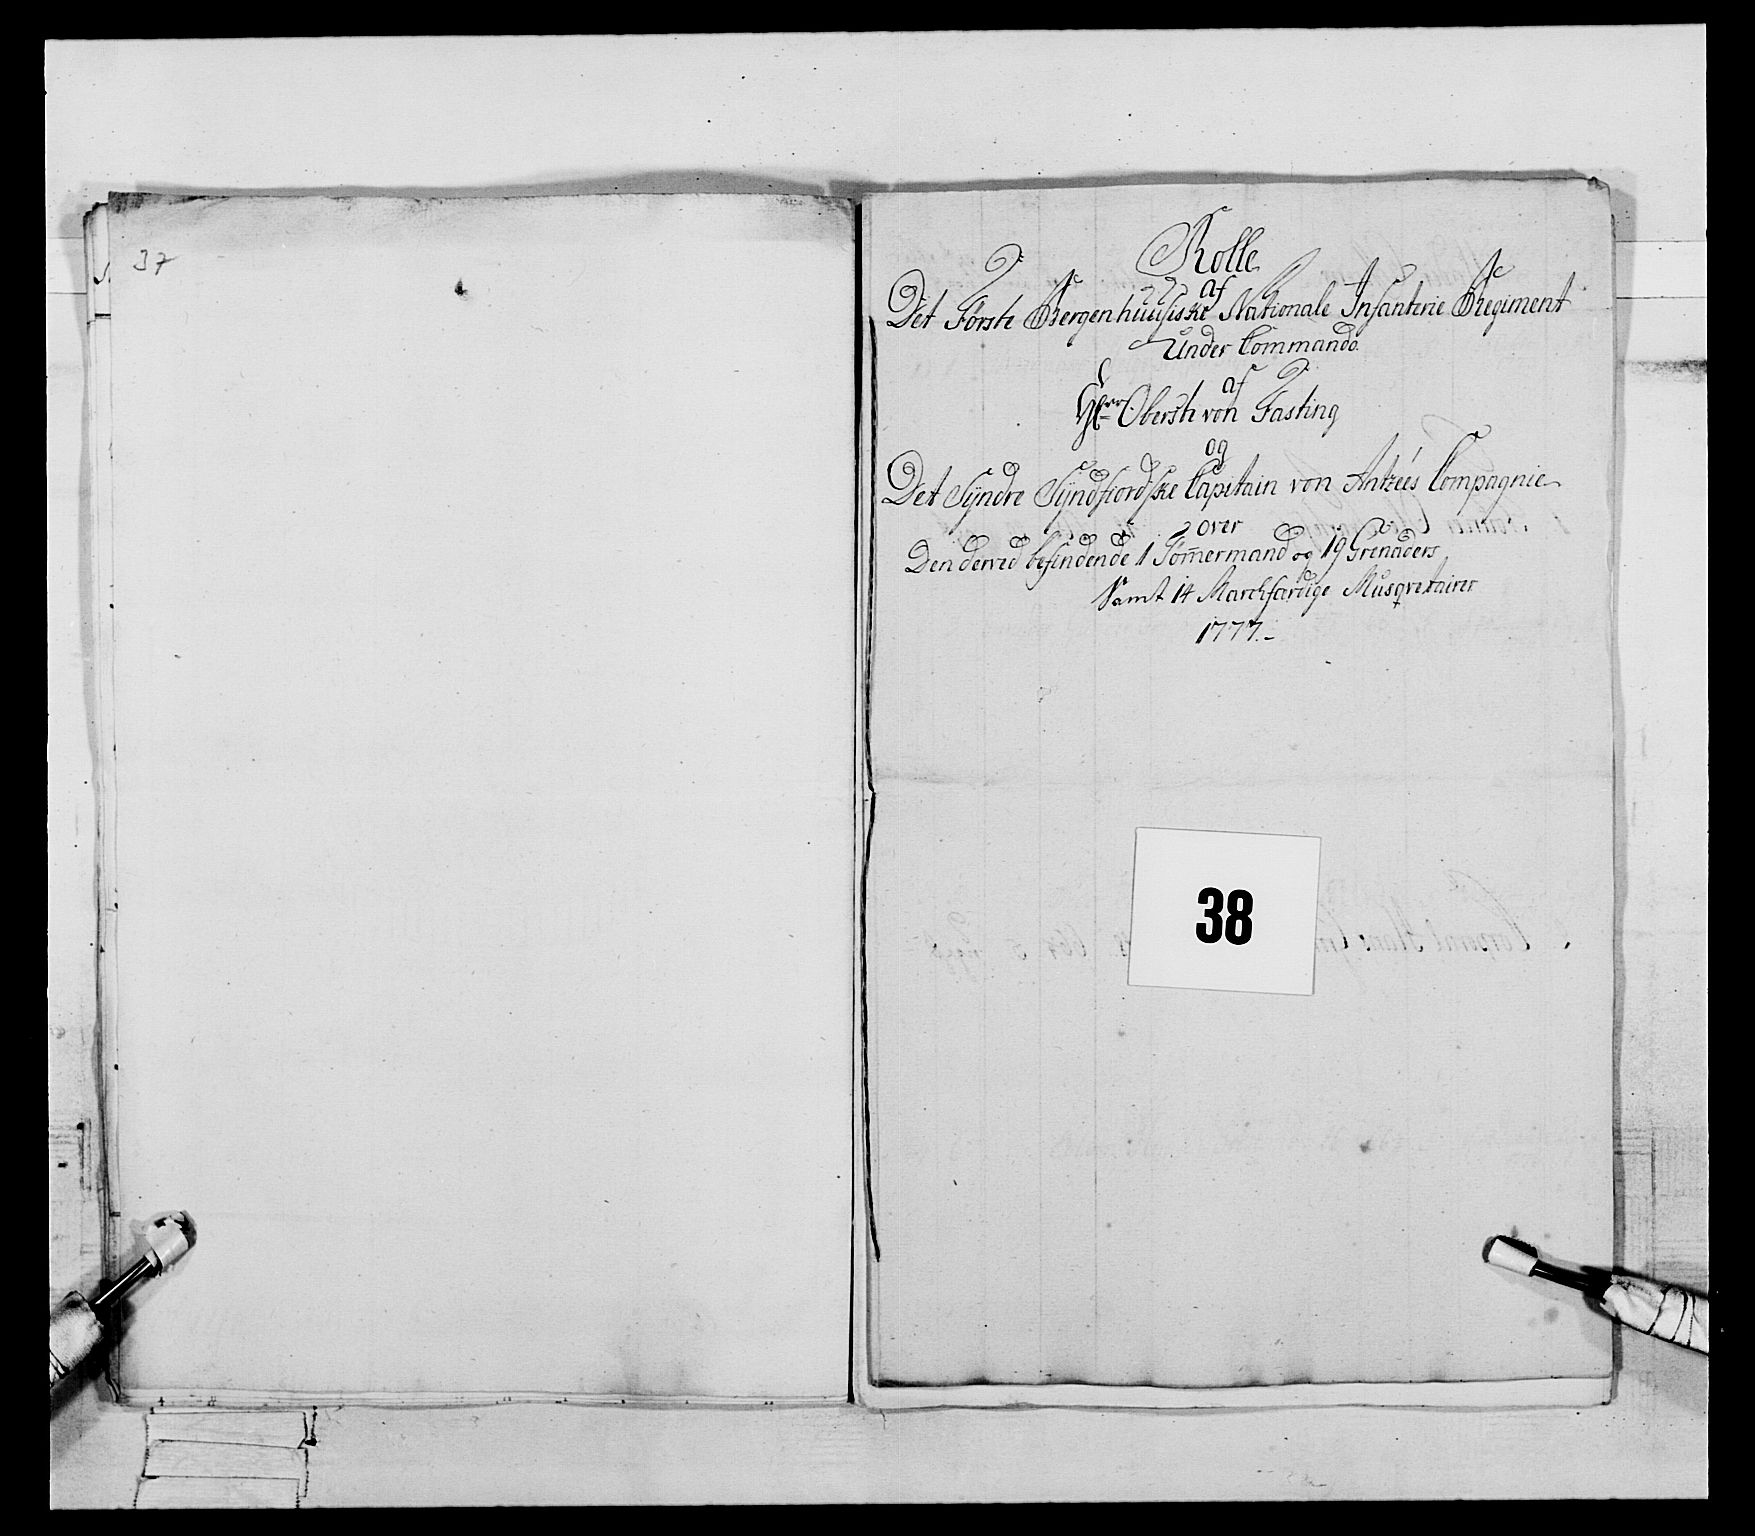 37
Rolle
af
Det Første Bergenhuusiske Nationale Infanterie Regiment
Under Commando
af
Hrr. Oberst von Fasting
og
Det Syndre Syndfiordske Capitain von Antzées Compagnie
over
Den derved befindende 1 Tom̅ermand og 19 Grenaders
Samt 14 Marchfærdige Musqvetairer
1777.
38